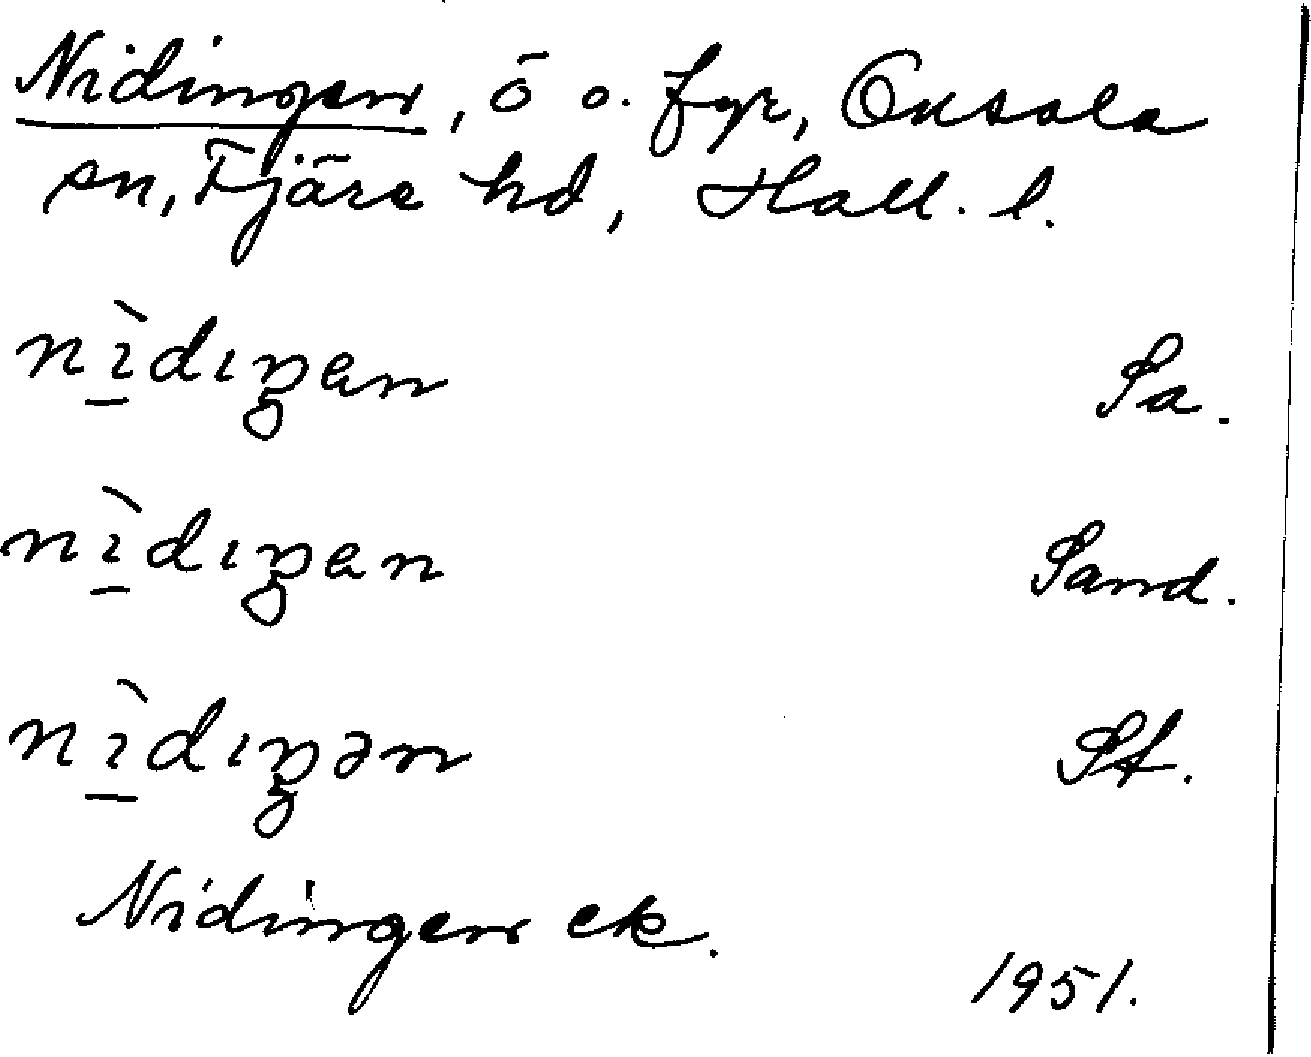 Nidingen, ö o. fyr, Onsala
sn, Fjäre hd, Hall. l.
nìdıŋen Sa.
nìdıŋen Sand.
nìdıŋən St.
Nidingen ek.
1951.